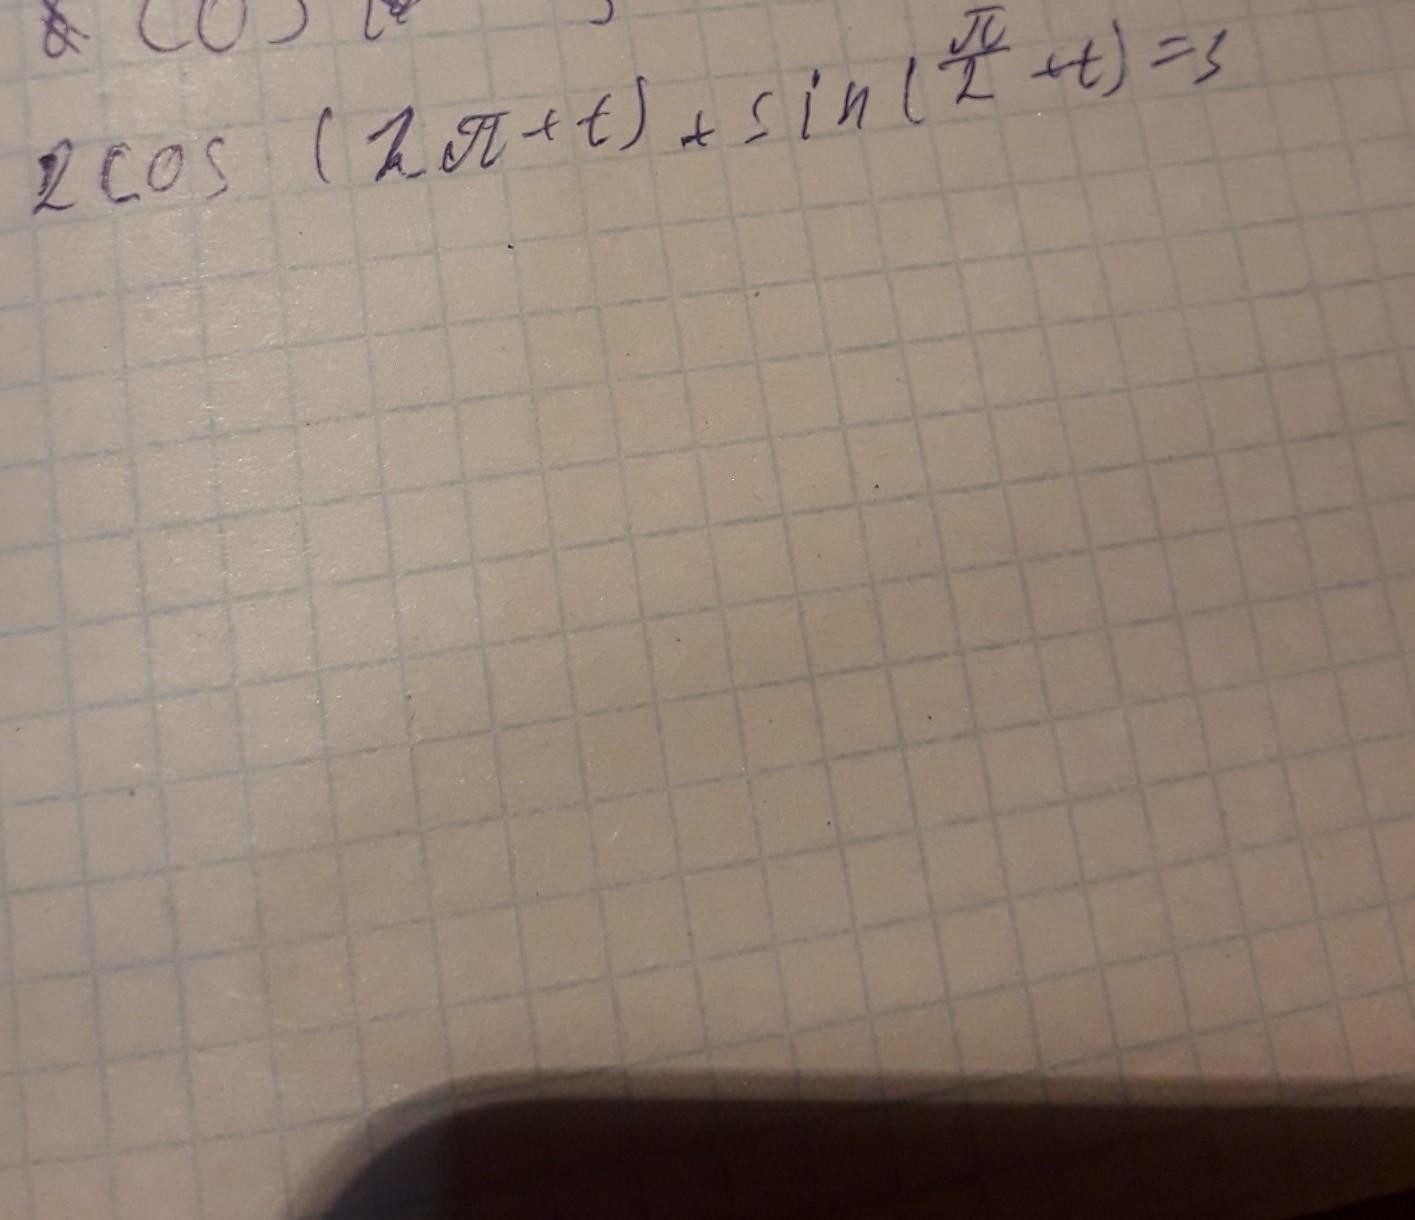 cos
2cos (2π+t)+sin(π/2+t)=3